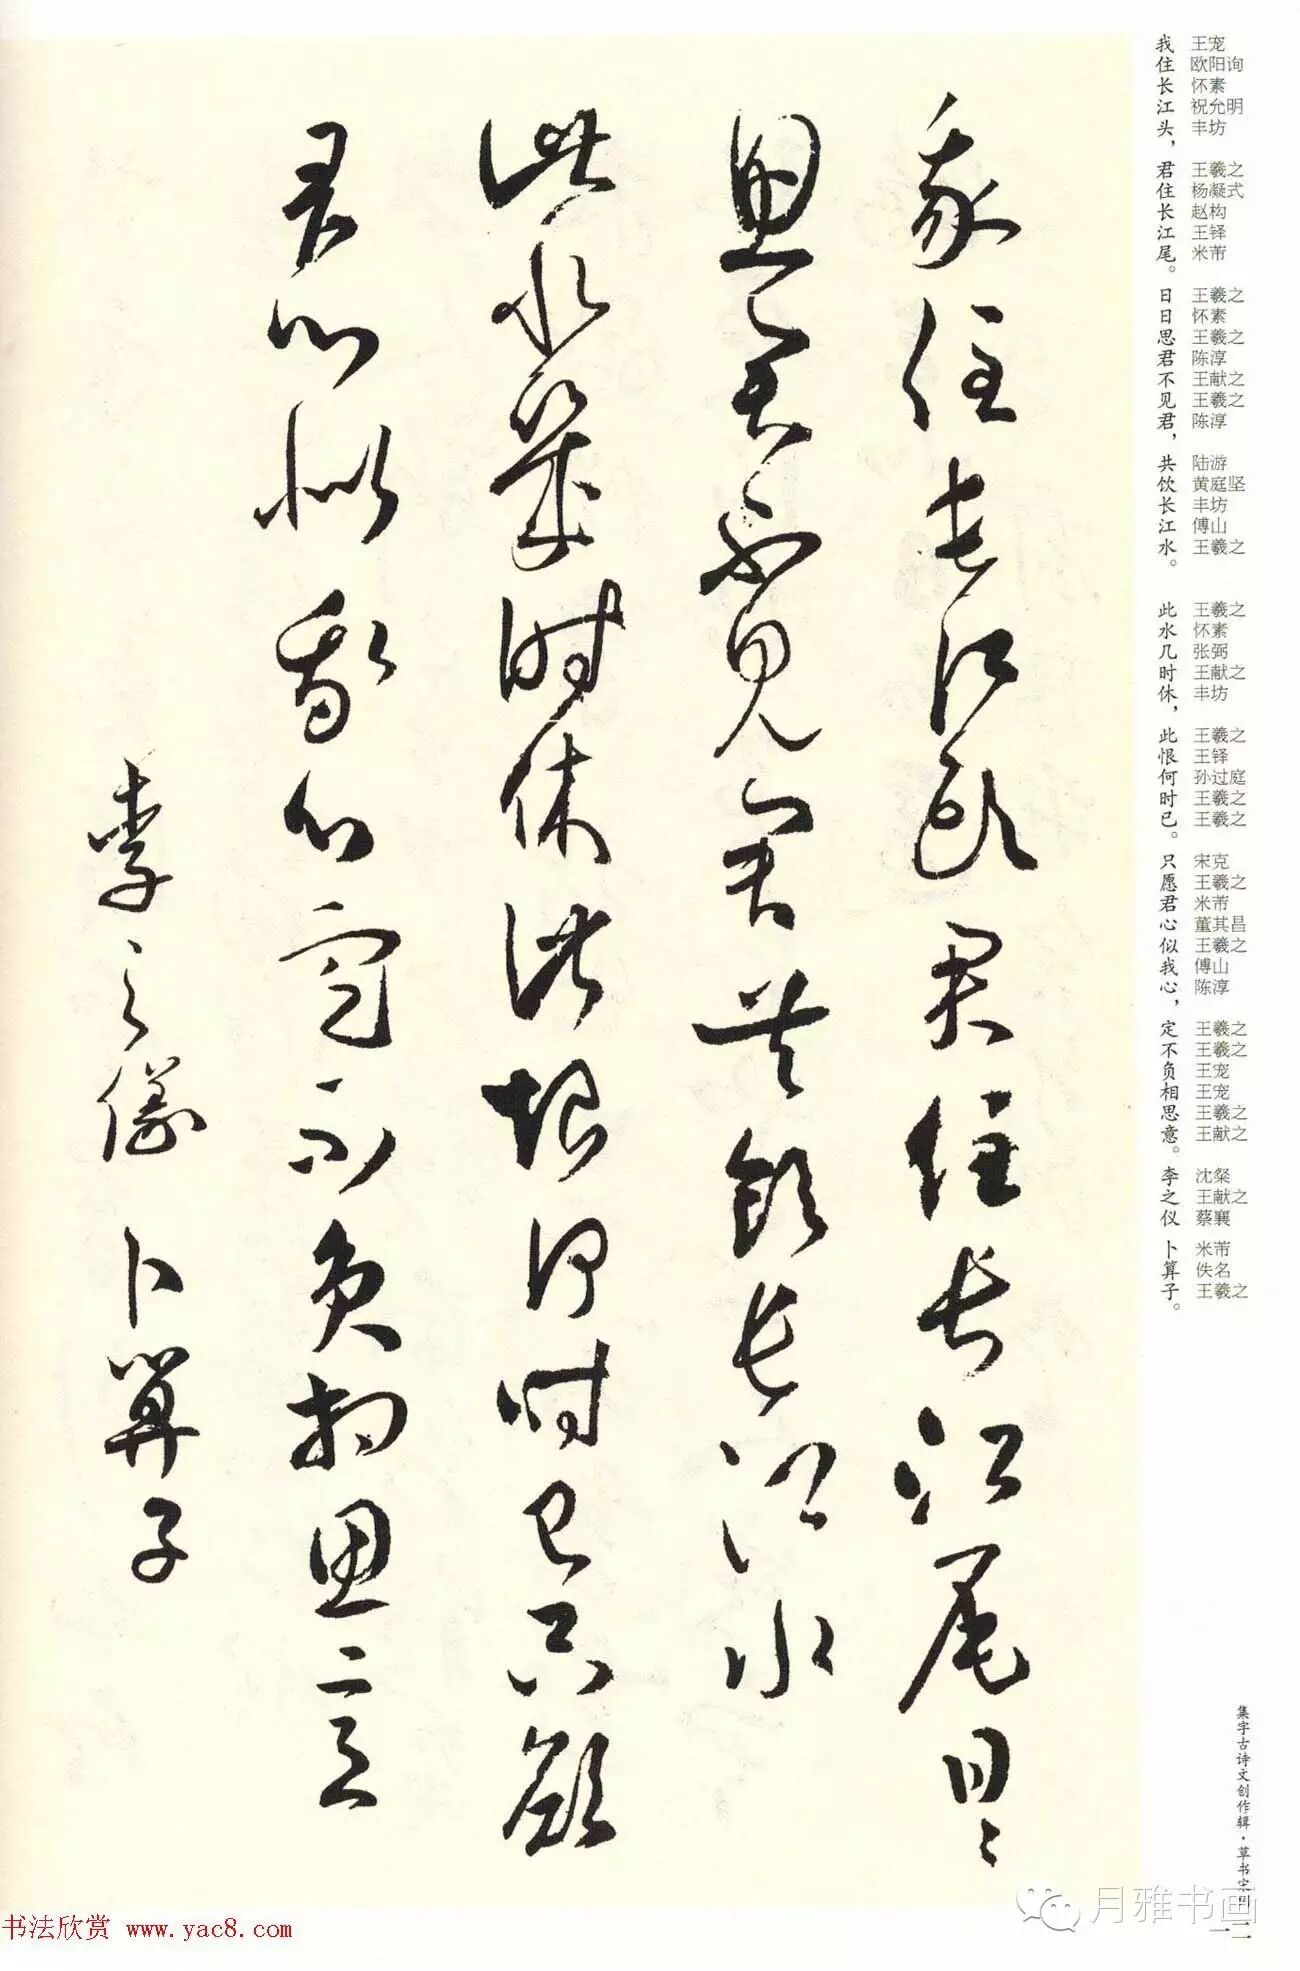 我住長江頭君住長江尾日日
思君不見君共飲長江水
此水幾時休此恨何時已只願
君心似我心定不負相思意
李之儀 卜算子
我住长江头，君住长江尾。日日思君不见君，共饮长江水。 此水几时休，此恨何时已。只愿君心似我心，定不负相思意。李之仪 卜算子。
王宠 欧阳询 怀素 祝允明 丰坊 王羲之 杨凝式 赵构 王铎 米芾 王羲之 怀素 王羲之 陈淳 王献之 王羲之 陈淳 陆游 黄庭坚 丰坊 傅山 王羲之 王羲之 怀素 张弼 王献之 丰坊 王羲之 王铎 孙过庭 王羲之 王羲之 宋克 王羲之 米芾 董其昌 王羲之 傅山 陈淳 王羲之 王羲之 王宠 王宠 王羲之 王献之 沈粲 王献之 蔡襄 米芾 佚名 王羲之
集字古诗文创作辑·草书宋词
月雅书画
书法欣赏 www.yac8.com